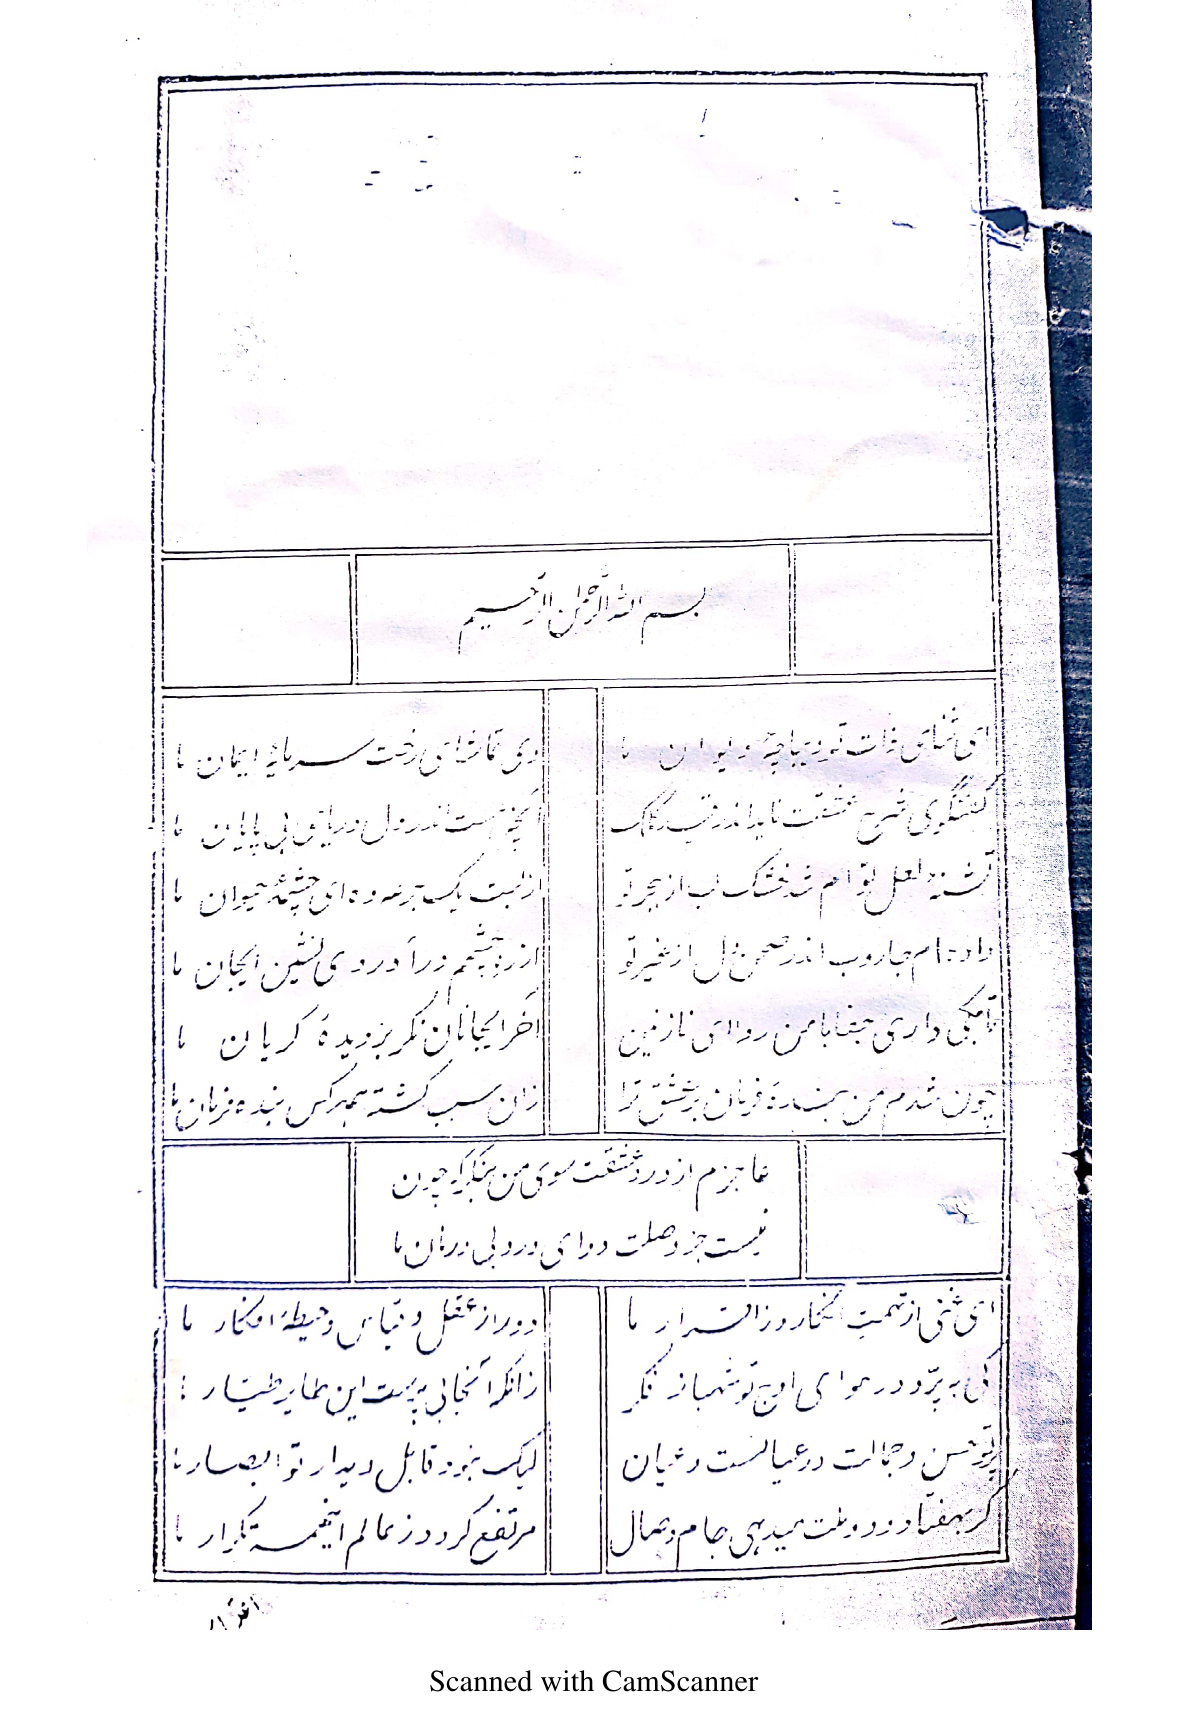 بسم الله الرحمن الرحیم
ای ثنای ذات تو دیباچهٔ دیوان ما
وی تماشای رخت سرمایهٔ ایمان ما
گفتگوی شرح عشقت ناید اندر قید کلک
آنچه هست اندر دل دریای بی پایان ما
تشنهٔ لعل توام شد خشک لب از هجر تو
از لبت یک جرعه ده ای چشمهٔ حیوان ما
داده ام جاروب اندر صحن دل از غیر تو
از ره چشمم درآ در وی نشین ایجان ما
تا بکی داری جفا با من روا ای نازنین
آخر ایجانان نگر بر دیدهٔ گریان ما
چون شدم من بندهٔ فرمان بر عشق ترا
زان سبب گشته همه کس بنده فرمان ما
عاجزم از درد عشقت سوی من بنگر که چون
نیست جز وصلت دوای درد بی درمان ما
ای غنی از تهمت انکار و ز اقرار ما
دور از عقل و قیاس و حیطهٔ افکار ما
کی به پرّد در هوای اوج تو شهباز فکر
زانکه آنجا بی پرست این طایر طیّار ما
پرتو حسن و جمالت در عیانست و عیان
لیک نبود قابل دیدار تو ابصار ما
گر بهفتاد و دو ملت میدهی جام وصال
مرتفع گردد ز عالم اینهمه تکرار ما